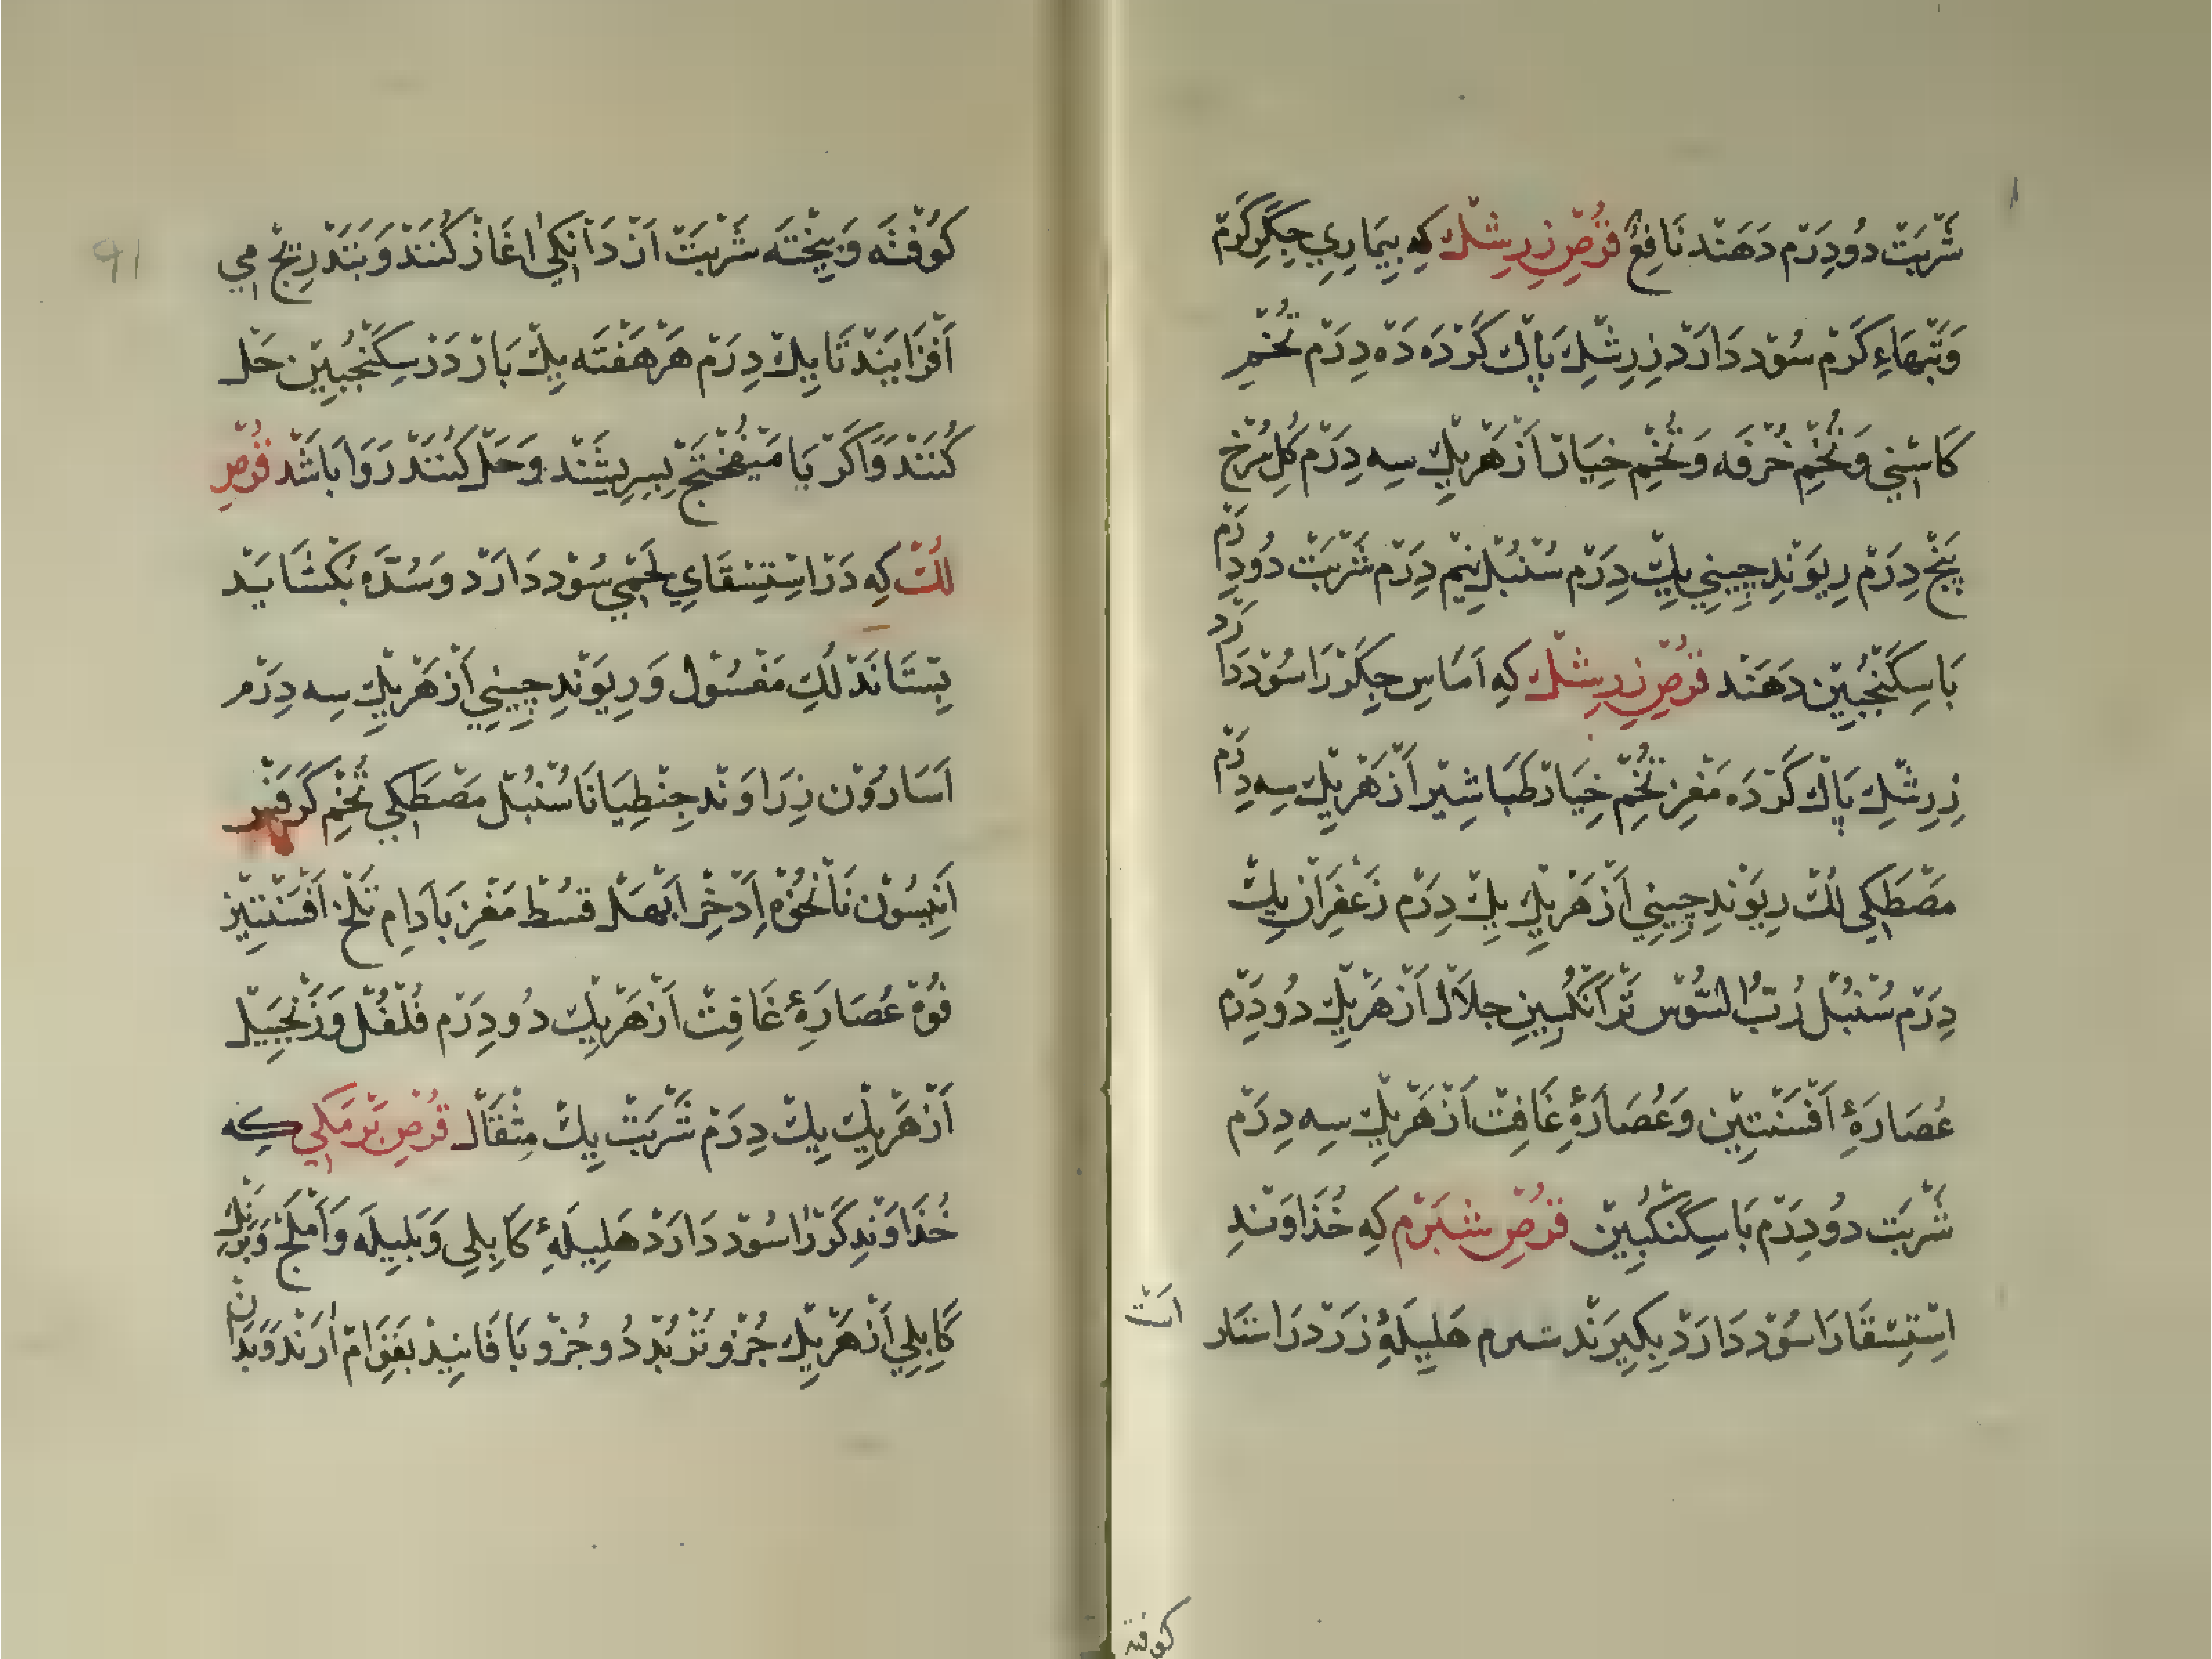 شَرْبَتْ دُو دِرَمْ دَهَنْد نَافِعْ قُرْصِ زِرِشْك كِه بِيمَارِيِ جِگَرِ گَرْمْ
وَتَبْهَاءِ گَرْمْ سُوْد دَارَدْ زِرِشْكِ پَاكْ كَرْدَه دَه دِرَمْ تُخْمِ
كَاسْنِي وَتُخْمِ خُرْفَه وَتُخْمِ خِيَارْ اَزْ هَرْ يِكِ سِه دِرَمْ گُلِ سُرْخ
پَنْج دِرَمْ رِيوَنْدِ چِينِي يِكْ دِرَمْ سُنْبُلْ نِيمْ دِرَمْ شَرْبَتْ دُو دِرَمْ
بَا سِكَنْجُبِينْ دَهَنْد قُرْصِ زِرِشْك كِه اَمَاسِ جِگَرْ رَا سُوْد دَارَدْ
زِرِشْكِ پَاكْ كَرْدَه مَغْزِ تُخْمِ خِيَارْ طَبَاشِيْر اَزْ هَرْ يِكْ سِه دِرَمْ
مَصْطَكِي لُكْ رِيوَنْدِ چِينِي اَزْ هَرْ يِكْ يِكْ دِرَمْ زَعْفَرَانْ يِكْ
دِرَمْ سُنْبُلْ رُبُّ السُّوْس تَرَانْگُبِينِ جلَالْ اَزْ هَرْ يِكْ دُو دِرَمْ
عُصَارَهٔ اَفْسَنْتِيْن وَعُصَارَهٔ غَافِتْ اَزْ هَرْ يِكْ سِه دِرَمْ
شَرْبَت دُو دِرَمْ بَا سِكَنْگُبِيْن قُرْصِ شُبْرُمْ كِه خُذَاوَنْدِ
اِسْتِسْقَا رَا سُوْد دَارَدْ بِگِيرَنْد شبرم هَلِيلَهٔ زَرْد رَاسْتَار
اسَتْ
كوفته
91
كُوفْتَه وَبِيخْتَه شَرْبَتْ اَزْ دَانْگِي اٰغَازْ كُنَنْدْ وَبَتَدْرِيْجْ مِي
اَفْزَايَنَدْ تَا يِكْ دِرَمْ هَرْ هَفْتَه يِكْ بَارْ دَرْ سِكَنْجُبِيْن حَلْ
كُنَنْدْ وَاگَرْ بَا مَيْفُخْتَجْ بِسِرِيشَنْد وَحَلْ كُنَنْدْ رَوَا بَاشَدْ قُرْصِ
لُكْ كِه دَرْ اِسْتِسْقَايِ لَحْمِي سُوْد دَارَدْ وَسُدَّه بُگْشَايَدْ
بِسْتَانَدْ لُكِ مَغْسُوْل وَرِيوَنْدِ چِينِي اَزْ هَرْ يِكِ سِه دِرَمْ
اَسَارُوْن زِرَاوَنْد جِنْطِيَانَا سُنْبُلْ مَصْطَكِي تُخْمِ كَرَفْس
اَنِيسُوْن نَانْخُوْه اِذْخِرْ اَبْهَلْ قُسْطْ مَغْزِ بَادَامِ تَلْخ اَفْسَنْتِيْن
فُوَّه عُصَارَهٔ غَافِتْ اَزْ هَرْ يِكْ دُو دِرَمْ فُلْفُلْ وَزَنْجَبِيْل
اَزْ هَرْ يِكْ يِكْ دِرَمْ شَرْبَتْ يِكْ مِثْقَالْ قُرْصِ بَرْمَكِي كه
خُذَاوَنْدِ گَرْ رَا سُوْد دَارَدْ هَلِيلَهٔ كَابِلِي وَبَلِيلَه وَاَمْلَجْ وَبَرَنْكِ
كَابِلِي اَزْ هَرْ يِكْ جُزْو تُرْبُدْ دُو جُزْو بَا فَانِيذْ بَقِوَامْ اٰرَنْد وَبَدَانْ